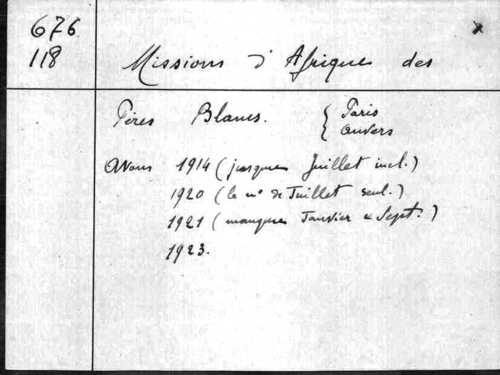 676
118
x
Missions d'Afrique des
Pères Blancs. { Paris
Anvers
Avons 1914 (jusque Juillet incl.)
1920 (le nº de Juillet seul.)
1921 (manque Janvier & Sept.)
1923.